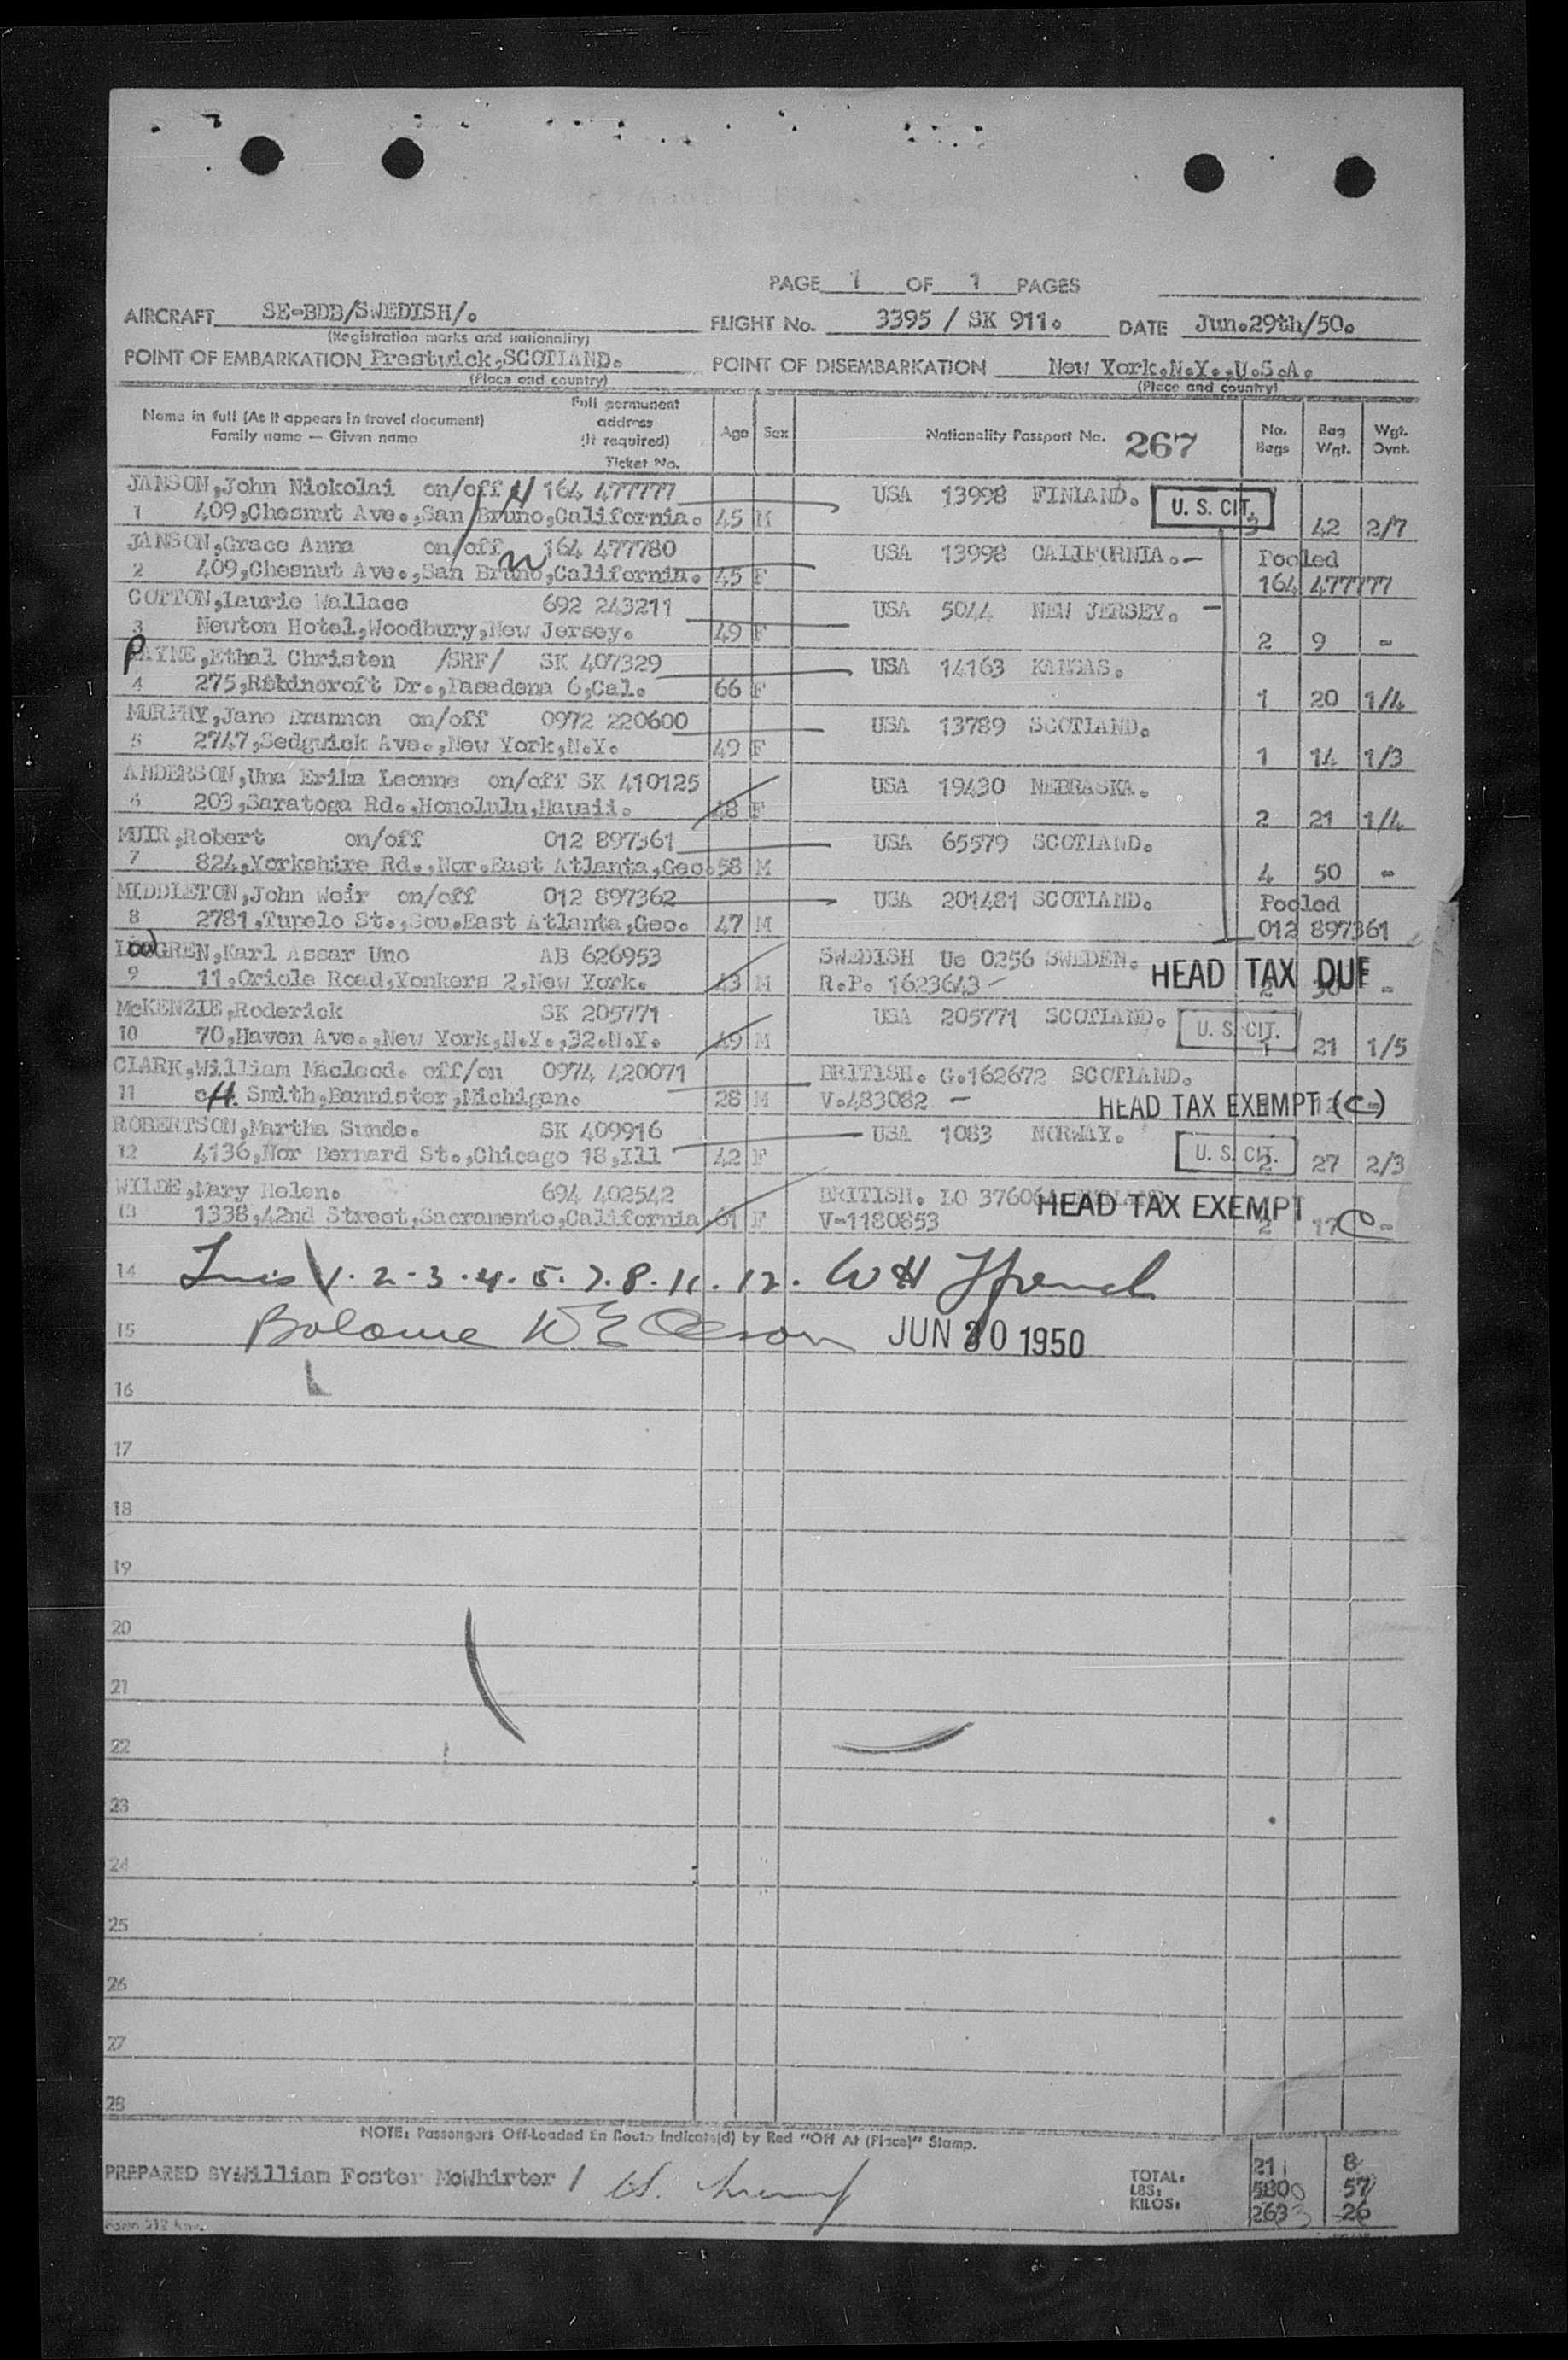 PAGE 1 OF 1 PAGES
AIRCRAFT SE-BDB/SWEDISH/. FLIGHT No. 3395 / SK 911. DATE Jun.29th/50.
(Registration marks and nationality)
POINT OF EMBARKATION Prestwick,SCOTLAND. POINT OF DISEMBARKATION New York.N.Y.,U.S.A.
(Place and country) (Place and country)
Name in full (As it appears in travel document) Full permanent address (If required) Ticket No. Age Sex Nationality Passport No. 267 No. Bags Bag Wgt. Wgt. Ovnt.
Family name — Given name
JANSON,John Nickolai on/off 164 477777 USA 13998 FINLAND. U. S. CIT.
1 409,Chesnut Ave.,San Bruno,California. 45 M 3 42 2/7
JANSON,Grace Anna on/off 164 477780 USA 13998 CALIFORNIA. Pooled
2 409,Chesnut Ave.,San Bruno,California. 45 F 164 477777
COTTON,Laurie Wallace 692 243211 USA 5044 NEW JERSEY.
3 Newton Hotel,Woodbury,New Jersey. 49 F 2 9 -
PAYNE,Ethal Christen /SRF/ SK 407329 USA 14163 KANSAS.
4 275,Robincroft Dr.,Pasadena 6,Cal. 66 F 1 20 1/4
MURPHY,Jane Brannon on/off 0972 220600 USA 13789 SCOTLAND.
5 2747,Sedgwick Ave.,New York,N.Y. 49 F 1 14 1/3
ANDERSON,Una Erika Leonne on/off SK 410125 USA 19430 NEBRASKA.
6 203,Saratoga Rd.,Honolulu,Hawaii. 48 F 2 21 1/4
MUIR,Robert on/off 012 897361 USA 65579 SCOTLAND.
7 824,Yorkshire Rd.,Nor.East Atlanta,Geo. 58 M 4 50 -
MIDDLETON,John Weir on/off 012 897362 USA 201481 SCOTLAND. Pooled
8 2781,Tupelo St.,Sou.East Atlanta,Geo. 47 M 012 897361
GREN,Karl Assar Uno AB 626953 SWEDISH Ue 0256 SWEDEN.
9 11,Oriole Road,Yonkers 2,New York. 43 M R.P. 1623643 HEAD TAX DUE 2 -
McKENZIE,Roderick SK 205771 USA 205771 SCOTLAND. U. S. CIT.
10 70,Haven Ave.,New York,N.Y.,32.N.Y. 49 M 1 21 1/5
CLARK,William Macleod. off/on 0974 420071 BRITISH. G.162672 SCOTLAND.
11 Smith,Bannister,Michigan. 28 M V.483082 HEAD TAX EXEMPT (C-)
ROBERTSON,Martha Sunde. SK 409916 USA 1083 NORWAY. U. S. CIT.
12 4136,Nor Bernard St.,Chicago 18,Ill 42 F 2 27 2/3
WILDE,Mary Helen. 694 402542 BRITISH. LO 376064 ENGLAND
13 1338,42nd Street,Sacramento,California 61 F V-1180853 HEAD TAX EXEMPT 2 17 C -
14 1. 2. 3. 4. 5. 7. 8. 11. 12. W H
15 JUN 30 1950
16
17
18
19
20
21
22
23
24
25
26
27
28
NOTE: Passengers Off-Loaded En Route Indicate(d) by Red "Off At (Place)" Stamp.
PREPARED BY:William Foster McWhirter /
TOTAL: 21 8
LBS: 580 57
KILOS: 263 26